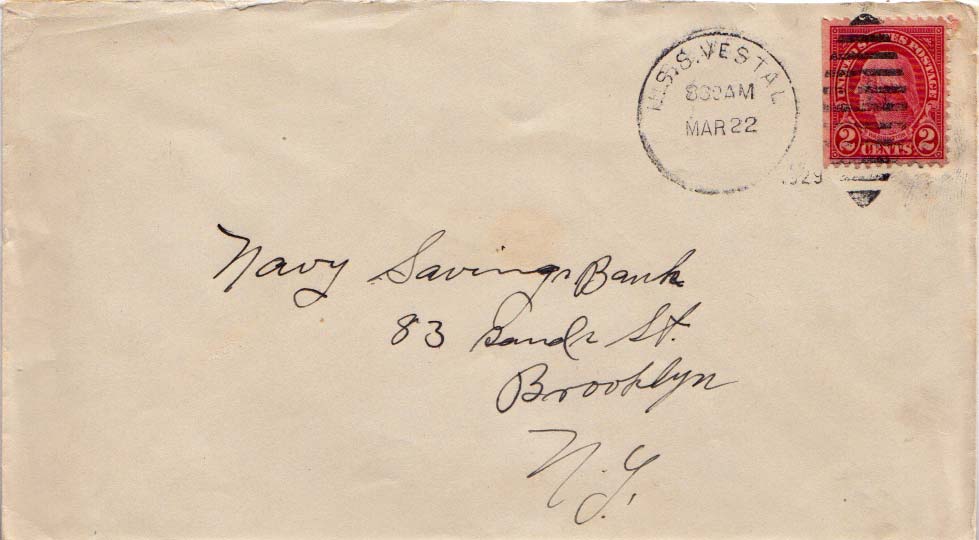 U.S.S. VESTAL
830AM
MAR 22
1929
UNITED STATES POSTAGE
2 CENTS 2
Navy Savings Bank
83 Sands St.
Brooklyn
N.Y.